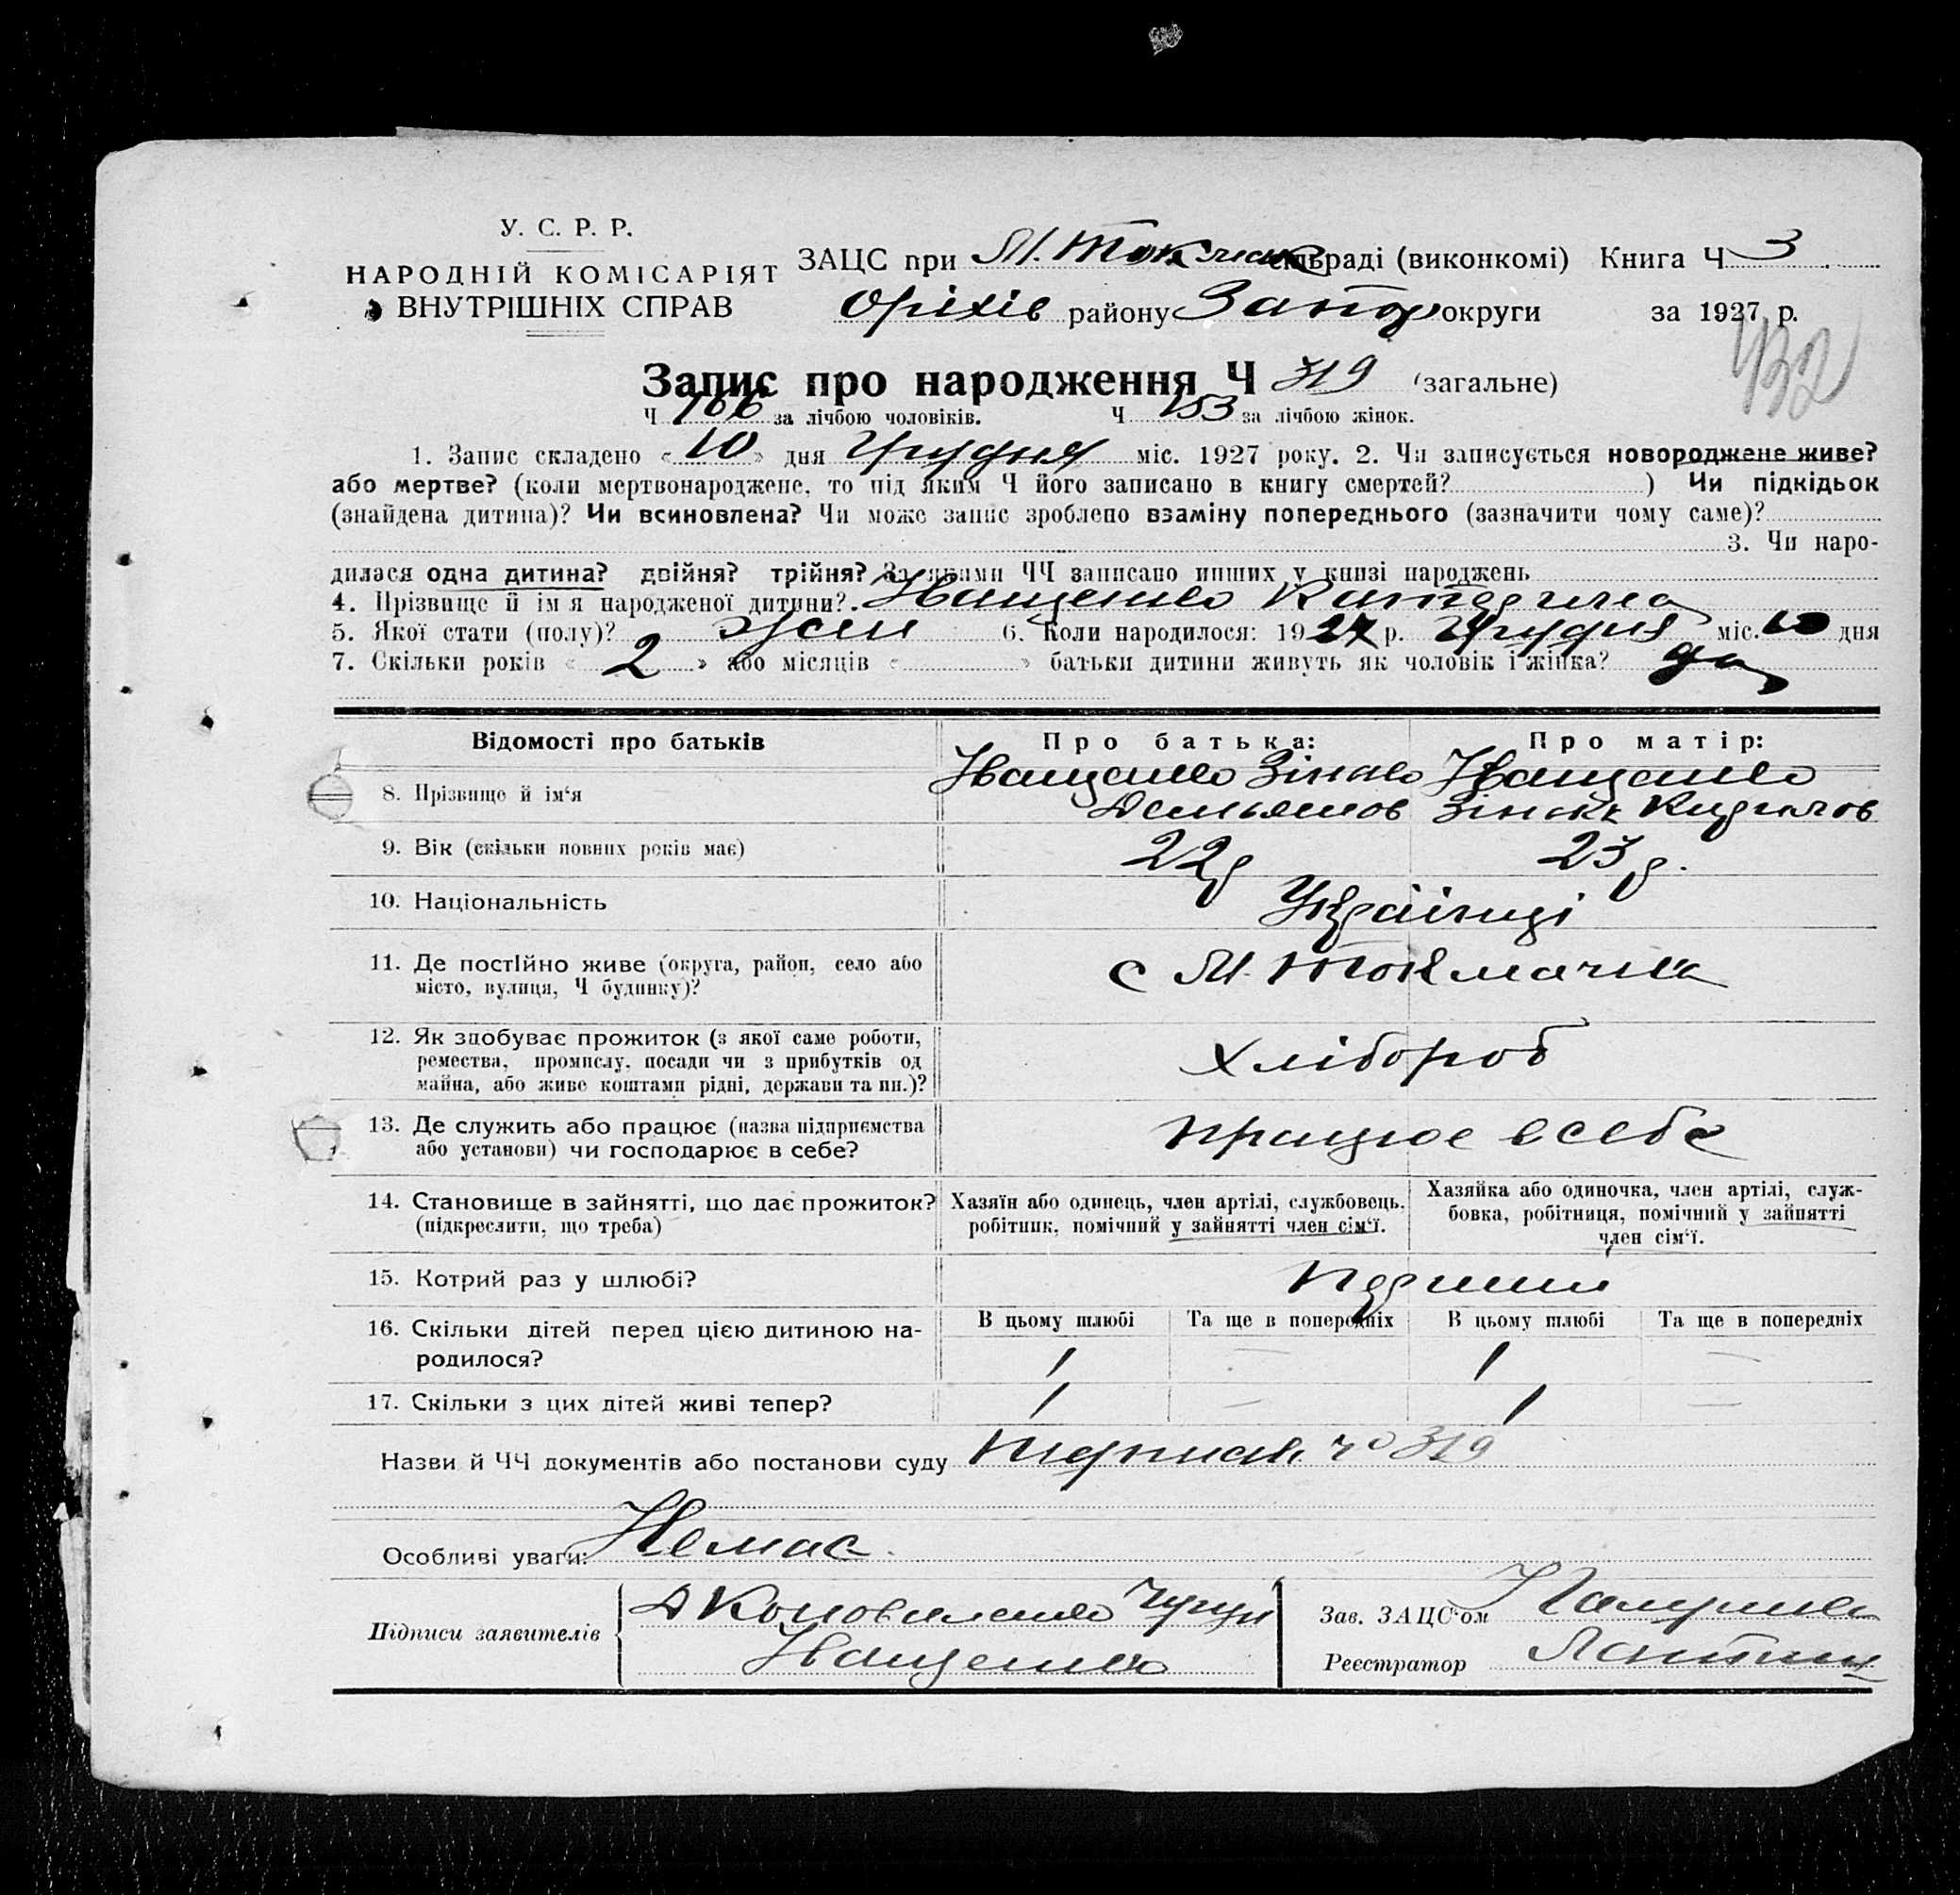 У. С. Р. Р.
НАРОДНІЙ КОМІСАРІЯТ
ВНУТРІШНІХ СПРАВ
ЗАЦС при М. Токмач сільраді (виконкомі) Книга Ч 3
Оріхів району Запор округи за 1927 р.
432
Запис про народження Ч 319 (загальне)
Ч 166 за лічбою чоловіків. Ч 153 за лічбою жінок.
1. Запис складено « 10 » дня Грудня міс. 1927 року. 2. Чи записується новороджене живе?
або мертве? (коли мертвонароджене, то під яким Ч його записано в книгу смертей? ) Чи підкідьок
(знайдена дитина)? Чи всиновлена? Чи може запис зроблено взаміну попереднього (зазначити чому саме)?
3. Чи наро-
дилася одна дитина? двійня? трійня? За якими ЧЧ записано инших у книзі народжень
4. Прізвище й ім'я народженої дитини? Іващенко Катерина
5. Якої стати (полу)? жен 6. Коли народилося: 1927 р. Грудня міс. 10 дня
7. Скільки років « 2 » або місяців « » батьки дитини живуть як чоловік і жінка? да
Відомості про батьків Про батька: Про матір:
8. Прізвище й ім'я Іващенко Зінько Іващенко
Демьянов Зінька Кирилов
9. Вік (скільки повних років має) 22 р 23 р.
10. Національність Українці
11. Де постійно живе (округа, район, село або
місто, вулиця, Ч будинку)? с М. Токмачка
12. Як здобуває прожиток (з якої саме роботи,
ремества, промислу, посади чи з прибутків од
майна, або живе коштами рідні, держави та ин.)? Хлібороб
13. Де служить або працює (назва підприємства
або установи) чи господарює в себе? працює в себе
14. Становище в зайнятті, що дає прожиток?
(підкреслити, що треба)
Хазяїн або одинець, член артілі, службовець,
робітник, помічний у зайнятті член сім'ї.
Хазяйка або одиночка, член артілі, служ-
бовка, робітниця, помічний у зайнятті
член сім'ї.
15. Котрий раз у шлюбі? Перший
16. Скільки дітей перед цією дитиною на-
родилося?
В цьому шлюбі Та ще в попередніх В цьому шлюбі Та ще в попередніх
1 — 1 —
17. Скільки з цих дітей живі тепер? 1 — 1 —
Назви й ЧЧ документів або постанови суду 319
Особливі уваги: Немає.
Підписи заявителів Коноваленко
Іващенко
Зав. ЗАЦС'ом
Реєстратор